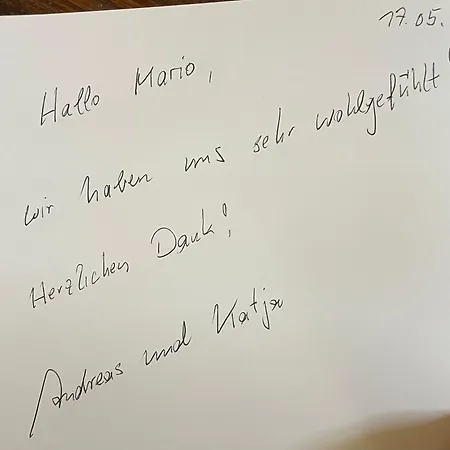 17.05.
Hallo Mario,
wir haben uns sehr wohlgefühlt!
Herzlichen Dank!
Andreas und Katja